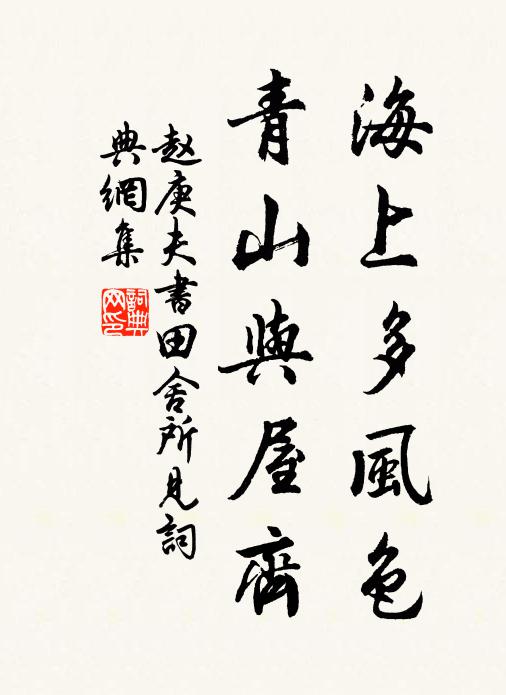 海上多風色
青山與屋齊
赵庚夫書田舍所見詞
典網集
詞典
网印